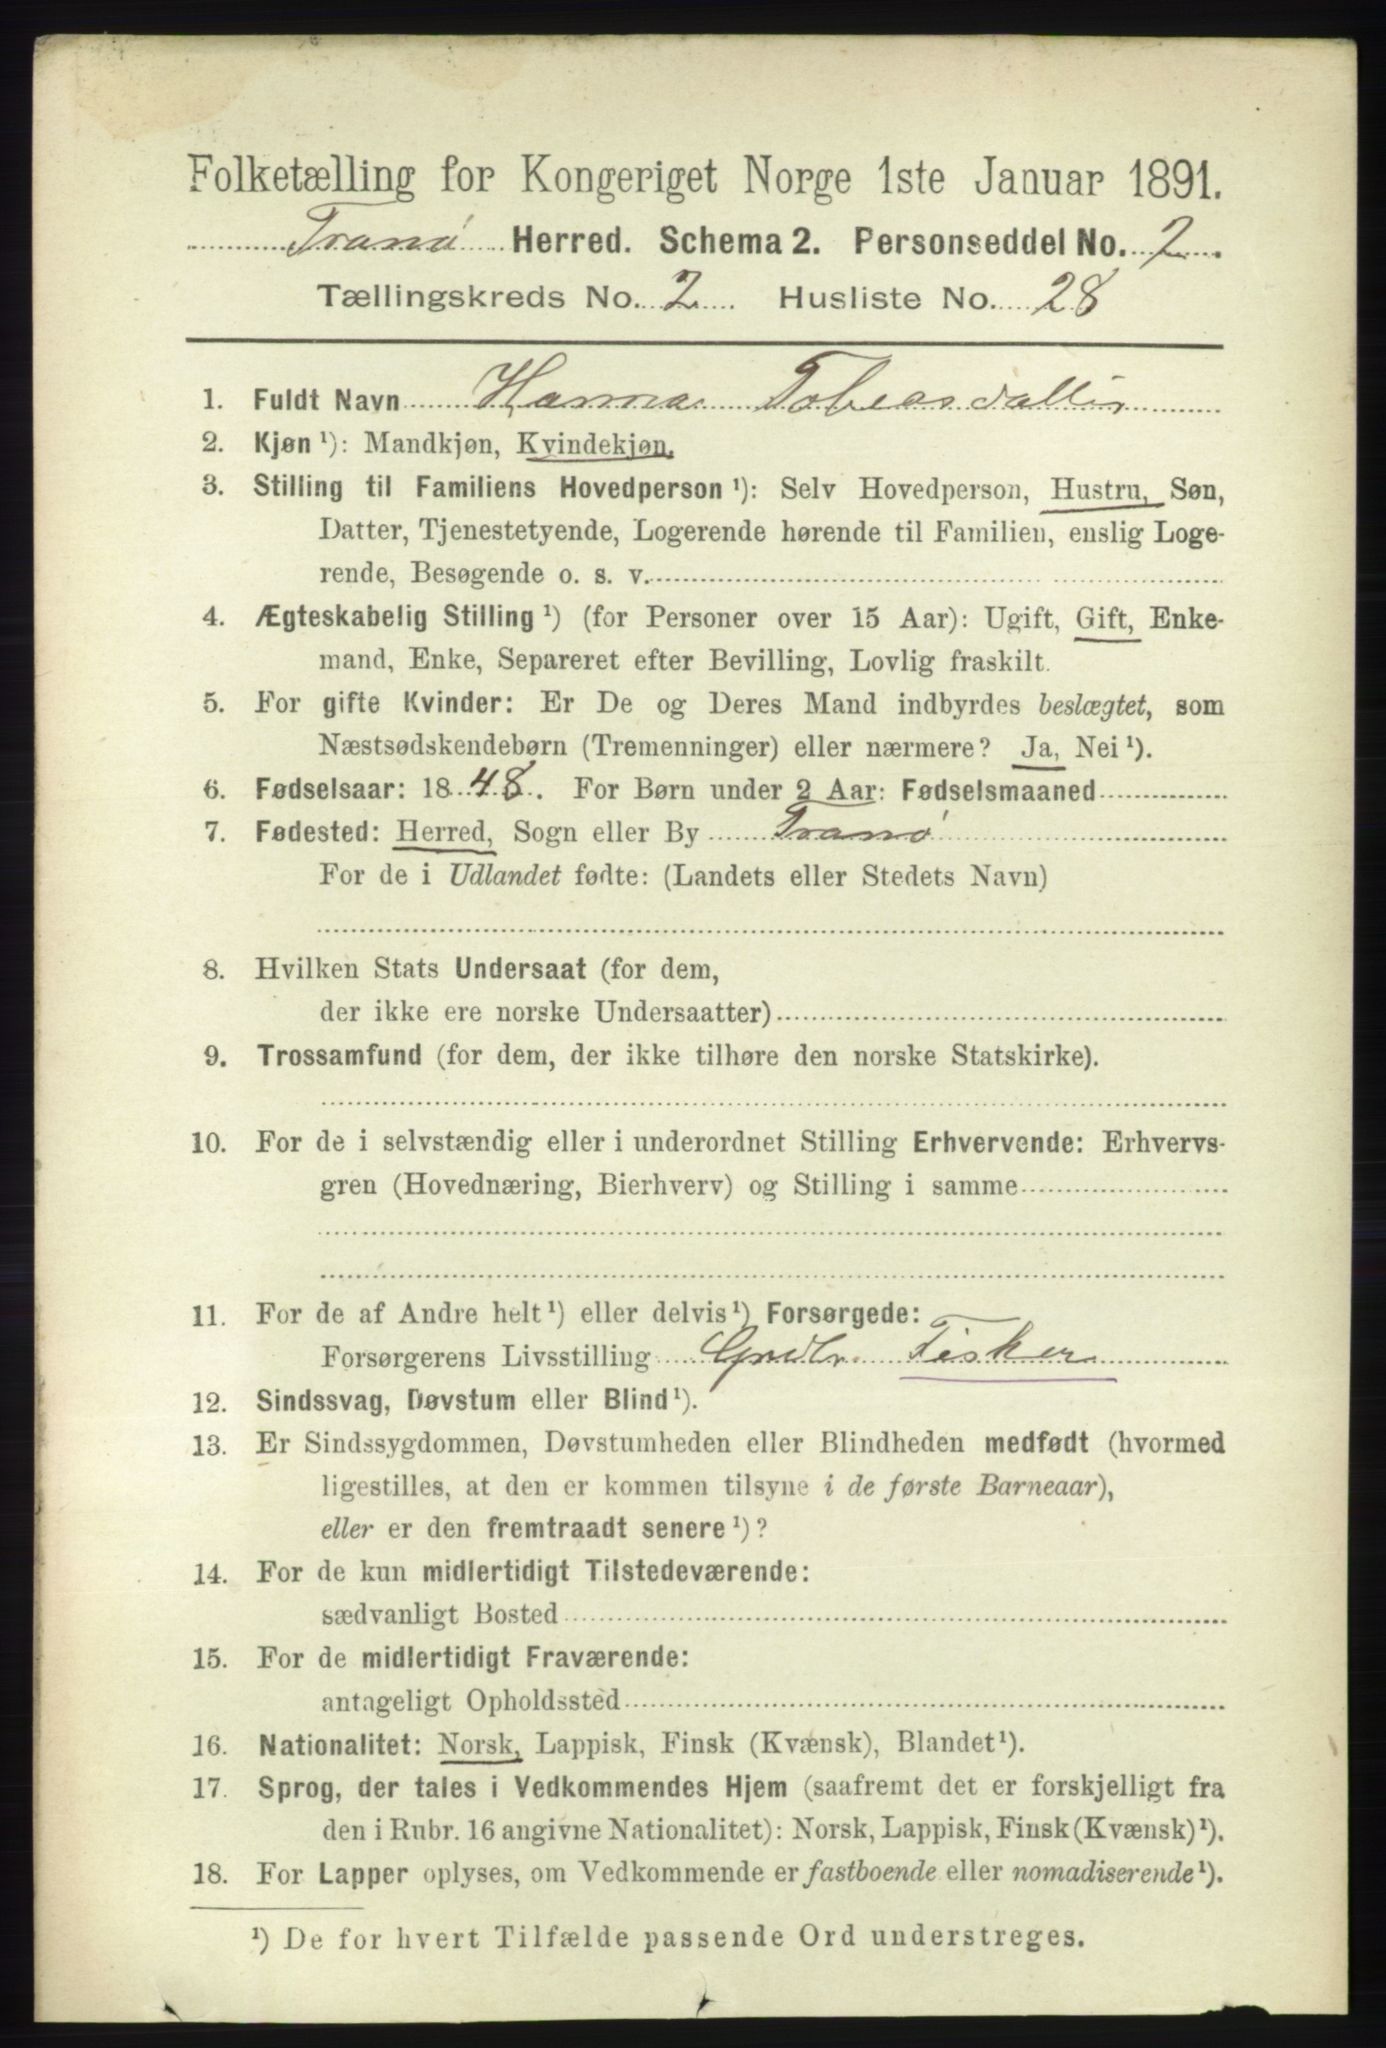 Folketælling for Kongeriget Norge 1ste Januar 1891.
Tranø Herred. Schema 2. Personseddel No. 2
Tællingskreds No. 2 Husliste No. 28
1. Fuldt Navn Hanna Tobiasdatter
2. Kjøn ¹): Mandkjøn, Kvindekjøn.
3. Stilling til Familiens Hovedperson ¹): Selv Hovedperson, Hustru, Søn,
Datter, Tjenestetyende, Logerende hørende til Familien, enslig Loge-
rende, Besøgende o. s. v.
4. Ægteskabelig Stilling ¹) (for Personer over 15 Aar): Ugift, Gift, Enke-
mand, Enke, Separeret efter Bevilling, Lovlig fraskilt.
5. For gifte Kvinder: Er De og Deres Mand indbyrdes beslægtet, som
Næstsødskendebørn (Tremenninger) eller nærmere? Ja, Nei ¹).
6. Fødselsaar: 1848. For Børn under 2 Aar: Fødselsmaaned
7. Fødested: Herred, Sogn eller By Tranø
For de i Udlandet fødte: (Landets eller Stedets Navn)
8. Hvilken Stats Undersaat (for dem,
der ikke ere norske Undersaatter)
9. Trossamfund (for dem, der ikke tilhøre den norske Statskirke).
10. For de i selvstændig eller i underordnet Stilling Erhvervende: Erhvervs-
gren (Hovednæring, Bierhverv) og Stilling i samme
11. For de af Andre helt ¹) eller delvis ¹) Forsørgede:
Forsørgerens Livsstilling Fisker
12. Sindssvag, Døvstum eller Blind ¹).
13. Er Sindssygdommen, Døvstumheden eller Blindheden medfødt (hvormed
ligestilles, at den er kommen tilsyne i de første Barneaar),
eller er den fremtraadt senere ¹)?
14. For de kun midlertidigt Tilstedeværende:
sædvanligt Bosted
15. For de midlertidigt Fraværende:
antageligt Opholdssted
16. Nationalitet: Norsk, Lappisk, Finsk (Kvænsk), Blandet ¹).
17. Sprog, der tales i Vedkommendes Hjem (saafremt det er forskjelligt fra
den i Rubr. 16 angivne Nationalitet): Norsk, Lappisk, Finsk (Kvænsk) ¹).
18. For Lapper oplyses, om Vedkommende er fastboende eller nomadiserende ¹).
¹) De for hvert Tilfælde passende Ord understreges.